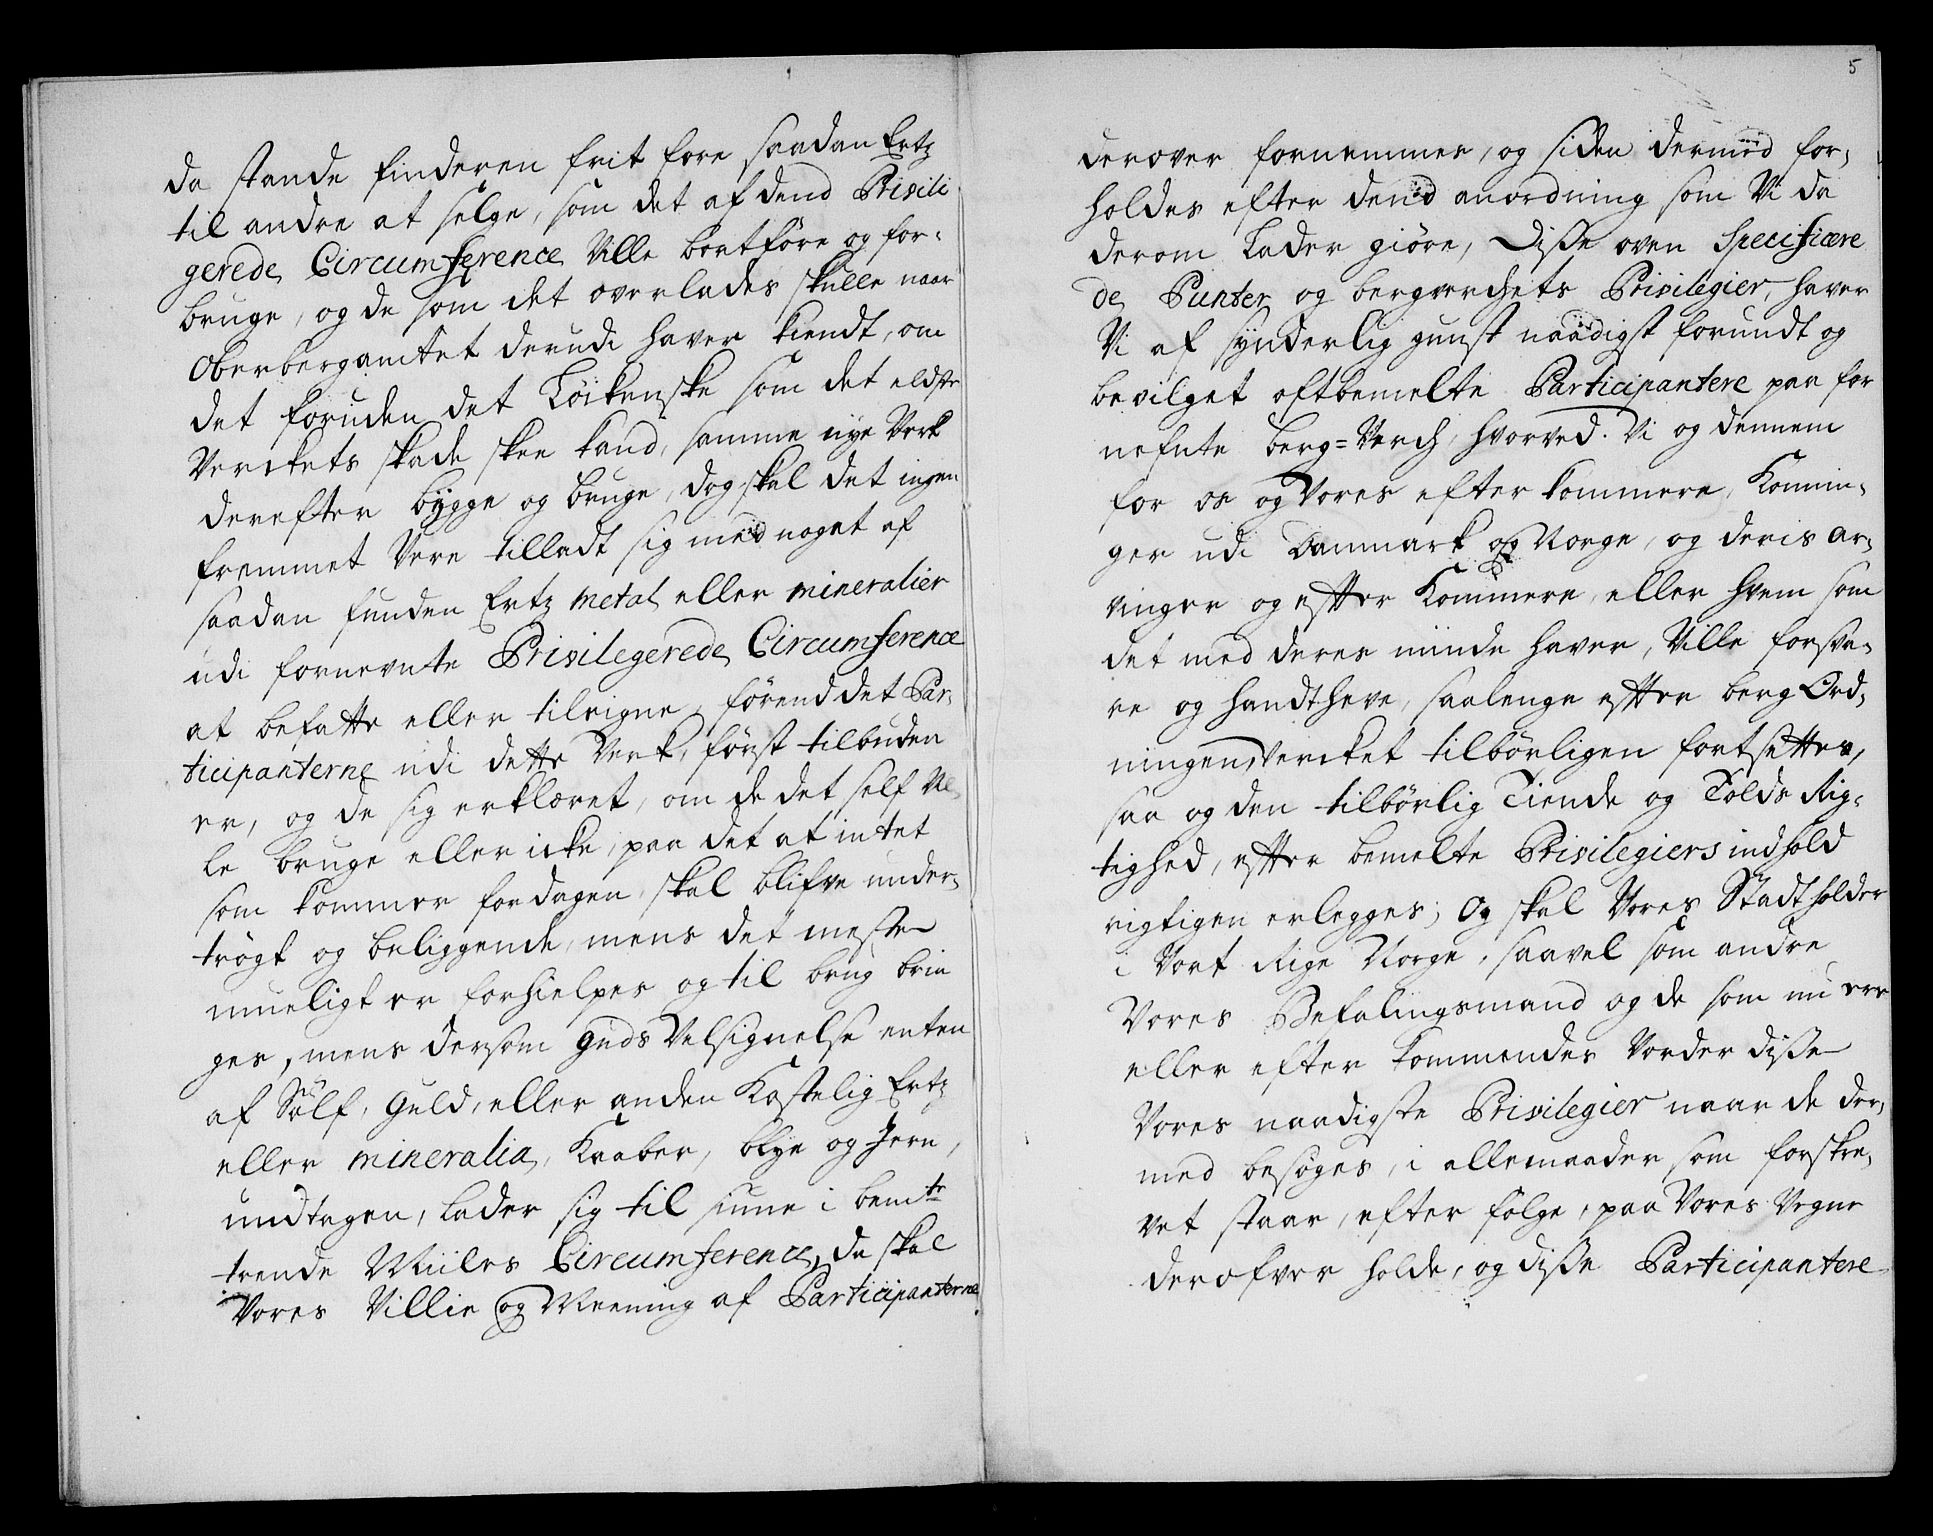 da stande finderen frit fore saadan Ertz
til andre at selge, som det af dend Privili
gerede Circumference Ville bortføre og for-
bruge, og de som det overlades skulle naar
Oberbergamtet derudi haver kiendt, om
det foruden det Løikenske som det eldste
Verckets skade skee kand, samme nye Verk
derefter bygge og bruge, dog skal det ingen
fremmet Vere tilladt sig med noget af
saadan funden Ertz metal eller mineralier
udi fornevnte Privilegerede Circumference
at befatte eller tileigne, førend det Par-
ticipanterne udi dette Verk, først tilbuden
er, og de sig erklæret, om de det self Vil-
le bruge eller icke, paa det at intet
som kommer for dagen skal blifve under-
trøgt og beliggende, mens det meste
mueligt er forhielpes og til brug brin
ges, mens dersom Guds Velsignelse enten
af Sølf, Guld, eller anden Kostelig Ertz
eller mineralia, Kaaber, blye og Jern,
undtagen, lader sig til siune i bemte
trende Miiles Circumference, da skal
Vores Villie og Meening af Participanterne
5
derover fornemmes, og siden dermed for-
holdes efter dend anordning som Vi da
derom lader giøre, Disse oven Specificere
de Punter og bergverchets Privilegier, haver
Vi af synderlig gunst naadigst forundt og
bevilget oftbemelte Participantere paa for
nefnte berg-Verch, hvorved Vi og dennem
for os og Vores efterkommere, Konnin-
ger udi Danmark og Norge, og deris ar-
vinger og efter Kommere, eller hvem som
det med deres minde haver, Ville forsva-
re og handtheve, saalenge efter berg Ord-
ningen Vercket tilbørligen fortsettes,
saa og den tilbørlig Tiende og Tolds Rig-
tighed, efter bemelte Privilegiers indhold
rigtigen erlegges; Og skal Vores Stadtholder
i Vort Rige Norge, saavel som andre
Vores Befalingsmand og de som nu ere
eller efter kommendes Vorder disse
Vores naadigste Privilegier naar de der-
med besøges, i allemaader som forskre-
vet staar, efter følge, paa Vores Vegne
derofver holde, og disse Participantere